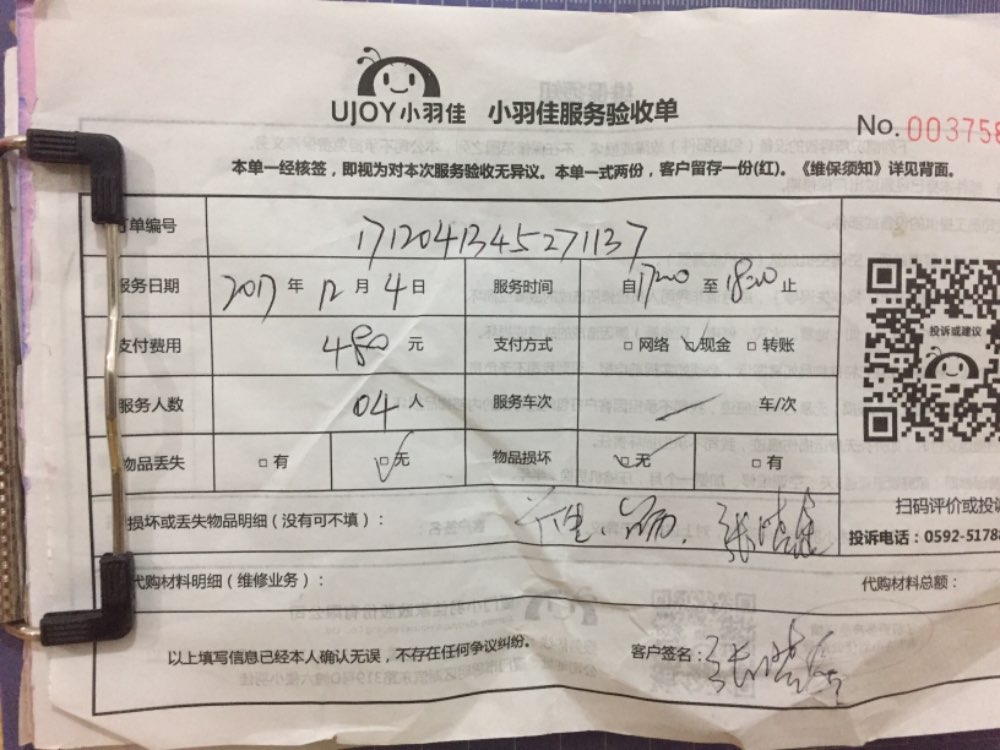 UJOY小羽佳 小羽佳服务验收单
No. 003758
本单一经核签，即视为对本次服务验收无异议。本单一式两份，客户留存一份(红)。《维保须知》详见背面。
订单编号 1712041345271137
服务日期 2017 年 12 月 4 日 服务时间 自 17:00 至 18:20 止
支付费用 480 元 支付方式 □网络 ☑现金 □转账
服务人数 04 人 服务车次 车/次
物品丢失 □有 ☑无 物品损坏 ☑无 □有
投诉或建议
扫码评价或投诉
投诉电话：0592-5178
损坏或丢失物品明细（没有可不填）：
代购材料明细（维修业务）： 代购材料总额：
以上填写信息已经本人确认无误，不存在任何争议纠纷。 客户签名：